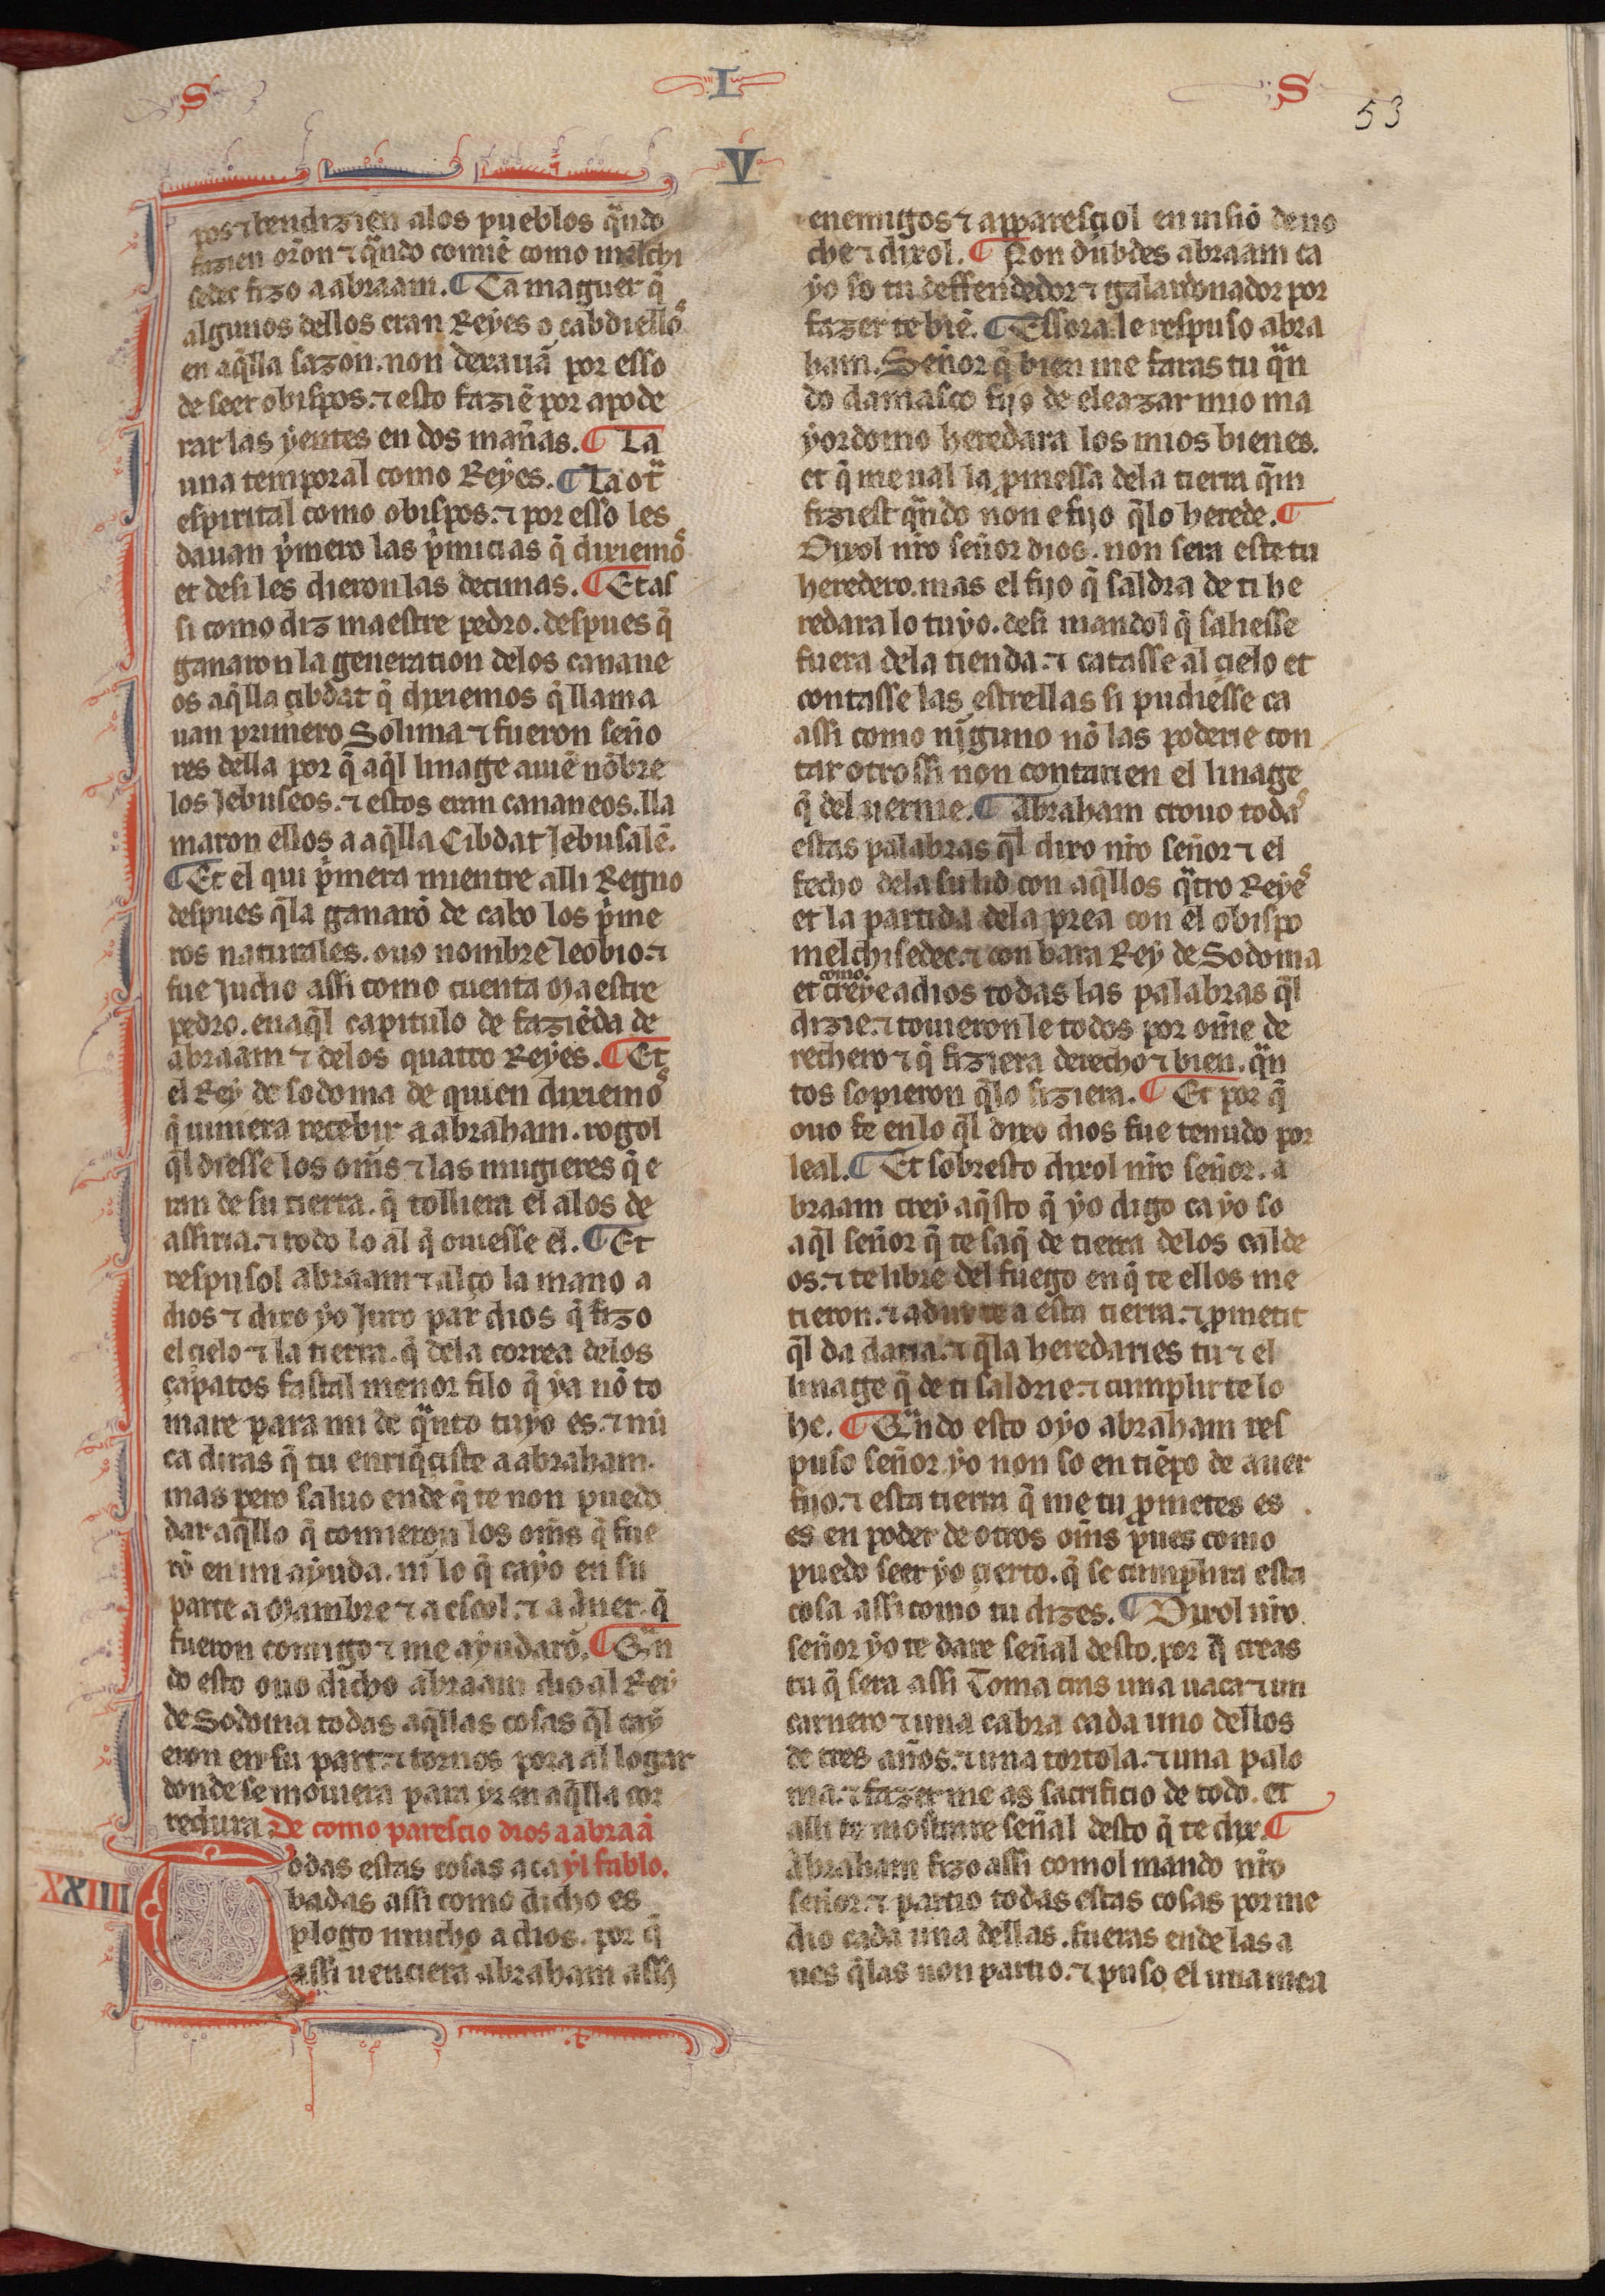 S L S
53
V
pos ⁊ bendizien alos pueblos qͣndo
fazien oron̄ ⁊ qͣndo comiẽ como melchi
sedec fizo a abraam. ¶ Ca maguer q̃
algunos dellos eran Reẏes o cabdiellos
en aq̃lla sazon. non dexauã por esso
de seer obispos. ⁊ esto faziẽ por apode
rar las ẏentes en dos man̄as. ¶ La
una temporal como Reẏes. ¶ La otͣ
espirital como obispos. ⁊ por esso les
dauan pͥmero las pͥmicias q̃ dixiemos
et desi les dieron las decimas. ¶ Et as
si como diz maestre pedro. despues q̃
ganaron la generation delos canane
os aq̃lla cibdat q̃ dixiemos q̃ llama
uan primero Solima ⁊ fueron sen̄o
res della por q̃ aq̃l linage auiẽ nõbre
los Jebuseos. ⁊ estos eran cananeos. lla
maron ellos a aq̃lla Cibdat Jebusalẽ.
¶ Et el qui pͥmera mientre alli Regno
despues q̃la ganarõ de cabo los pͥme
ros naturales. ouo nombre leobio. ⁊
fue Judio assi como cuenta Maestre
pedro. en aq̃l capitulo de faziẽda de
abraam ⁊ delos quatro Reẏes. ¶ Et
el Reẏ de sodoma de quien dixiemos
q̃ uiniera recebir a abraham. rogol
q̃l diesse los om̃s ⁊ las mugieres q̃ e
ran de su tierra. q̃ tolliera el alos de
assiria. ⁊ todo lo al q̃ ouiesse el. ¶ Et
respusol abraam ⁊ alço la mano a
dios ⁊ dixo ẏo Juro par dios q̃ fizo
el cielo ⁊ la tierra. q̃ dela correa delos
çapatos fastal menor filo q̃ ẏa nõ to
mare para mi de qͣnto tuẏo es. ⁊ nũ
ca diras q̃ tu enriq̃ciste a abraham.
mas pero saluo ende q̃ te non puedo
dar aq̃llo q̃ comieron los om̃s q̃ fue
rõ en mi aẏuda. ni lo q̃ caẏo en su
parte a Mambre ⁊ a escol. ⁊ a Aner. q̃
fueron comigo ⁊ me aẏudarõ. ¶ Qͣn
do esto ouo dicho abraam dio al Reẏ
de Sodoma todas aq̃llas cosas q̃l caẏ
eron en su part. ⁊ tornos pora al logar
donde se mouiera para ẏr en aq̃lla cor
redura. De como parescio dios a abraã
XXIIII
Todas estas cosas aca ẏl fablo.
badas assi como dicho es
plogo mucho a dios. por q̃
assi uenciera abraham assus
enemigos ⁊ apparesciol en uisiõ de no
che ⁊ dixol. ¶ Non dubdes abraam ca
ẏo so tu deffendedor ⁊ galardonador por
fazer te biẽ. ¶ Essora le respuso abra
ham. Sen̄or q̃ bien me faras tu qͣn
do damasco fijo de eleazar mio ma
ẏordomo heredara los mios bienes.
et q̃ me ual la ꝓmessa dela tierra q̃m
fiziest qͣndo non e fijo q̃lo herede. ¶
Dixol nr̃o sen̄or dios. non sera este tu
heredero. mas el fijo q̃ saldra de ti he
redara lo tuẏo. desi mandol q̃ saliesse
fuera dela tienda. ⁊ catasse al cielo et
contasse las estrellas si pudiesse ca
assi como nĩguno nõ las poderie con
tar otrossi non contarien el linage
q̃ del uernie. ¶ Abraham crouo todas
estas palabras q̃l dixo nr̃o sen̄or ⁊ el
fecho dela su lid con aq̃llos qͣtro Reẏes
et la partida dela prea con el obispo
melchisedec. ⁊ con bara Reẏ de Sodoma
et como creẏe a dios todas las palabras q̃l
dizie. ⁊ touieron le todos por om̃e de
rechero ⁊ q̃ fiziera derecho ⁊ bien. qͣn
tos sopieron q̃lo fiziera. ¶ Et por q̃
ouo fe en lo q̃l dixo dios fue tenudo por
leal. ¶ Et sobresto dixol nr̃o sen̄or. a
braam creẏ aq̃sto q̃ ẏo digo ca ẏo so
aq̃l sen̄or q̃ te saq̃ de tierra delos calde
os. ⁊ te libre del fuego en q̃ te ellos me
tieron. ⁊ adux te a esta tierra. ⁊ ꝓmetit
q̃l da daria. ⁊ q̃la heredaries tu ⁊ el
linage q̃ de ti saldrie ⁊ cumplir te lo
he. ¶ Qͣndo esto oẏo abraham res
puso sen̄or ẏo non so en tiẽpo de auer
fijo. ⁊ esta tierra q̃ me tu ꝓmetes es
es en poder de otros om̃s pues como
puedo seer ẏo cierto. q̃ se cumplira esta
cosa assi como tu dizes. ¶ Dixol nr̃o
sen̄or ẏo te dare sen̄al desto. por q̃ creas
tu q̃ sera assi Toma cras una uaca ⁊ un
carnero ⁊ una cabra cada uno dellos
de tres an̄os. ⁊ una tortola. ⁊ una palo
ma. ⁊ fazer me as sacrificio de todo. et
alli te mostrare sen̄al desto q̃ te dix. ¶
Abraham fizo assi comol mando nr̃o
sen̄or. ⁊ partio todas estas cosas por me
dio cada una dellas. fueras ende las a
ues q̃las non partio. ⁊ puso el una mea